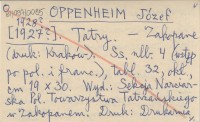 OPPENHEIM Józef
1928?
[1927?] Tatry. — Zakopane
(druk: Kraków). S. 3, nlb. 4 (wstęp
po pol. i franc.), tabl. 32, okł.,
cm 19 x 30. Wyd.: Sekcja Narciar-
ska Pol. Towarzystwa Tatrzańskiego
w Zakopanem. Druk: Drukarnia